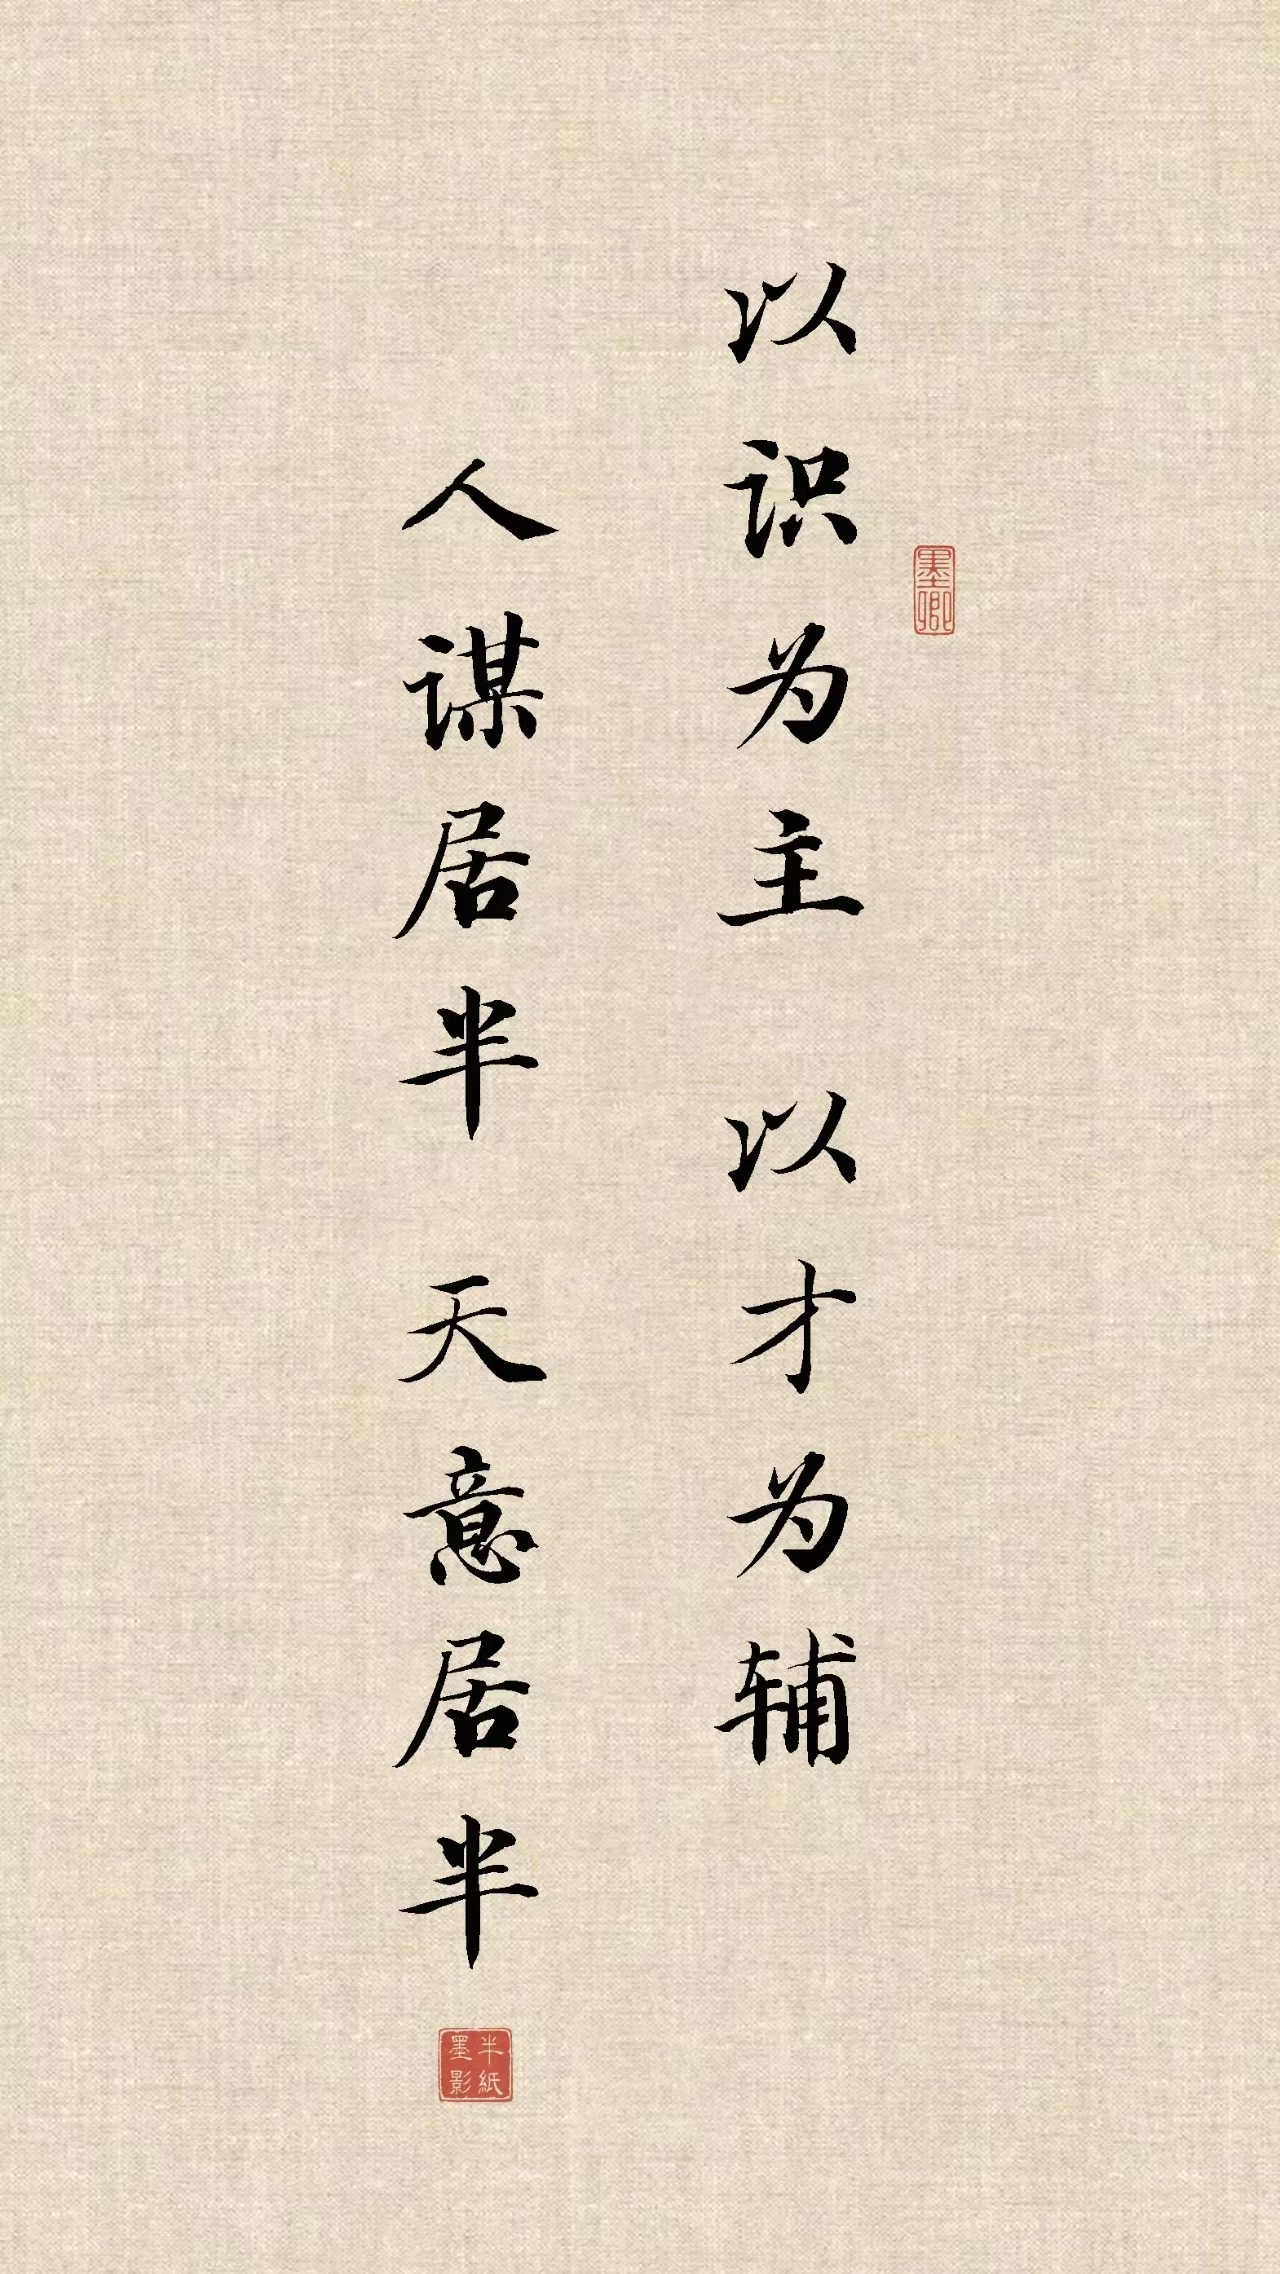 以识为主 以才为辅
人谋居半 天意居半
墨卿
半纸
墨影